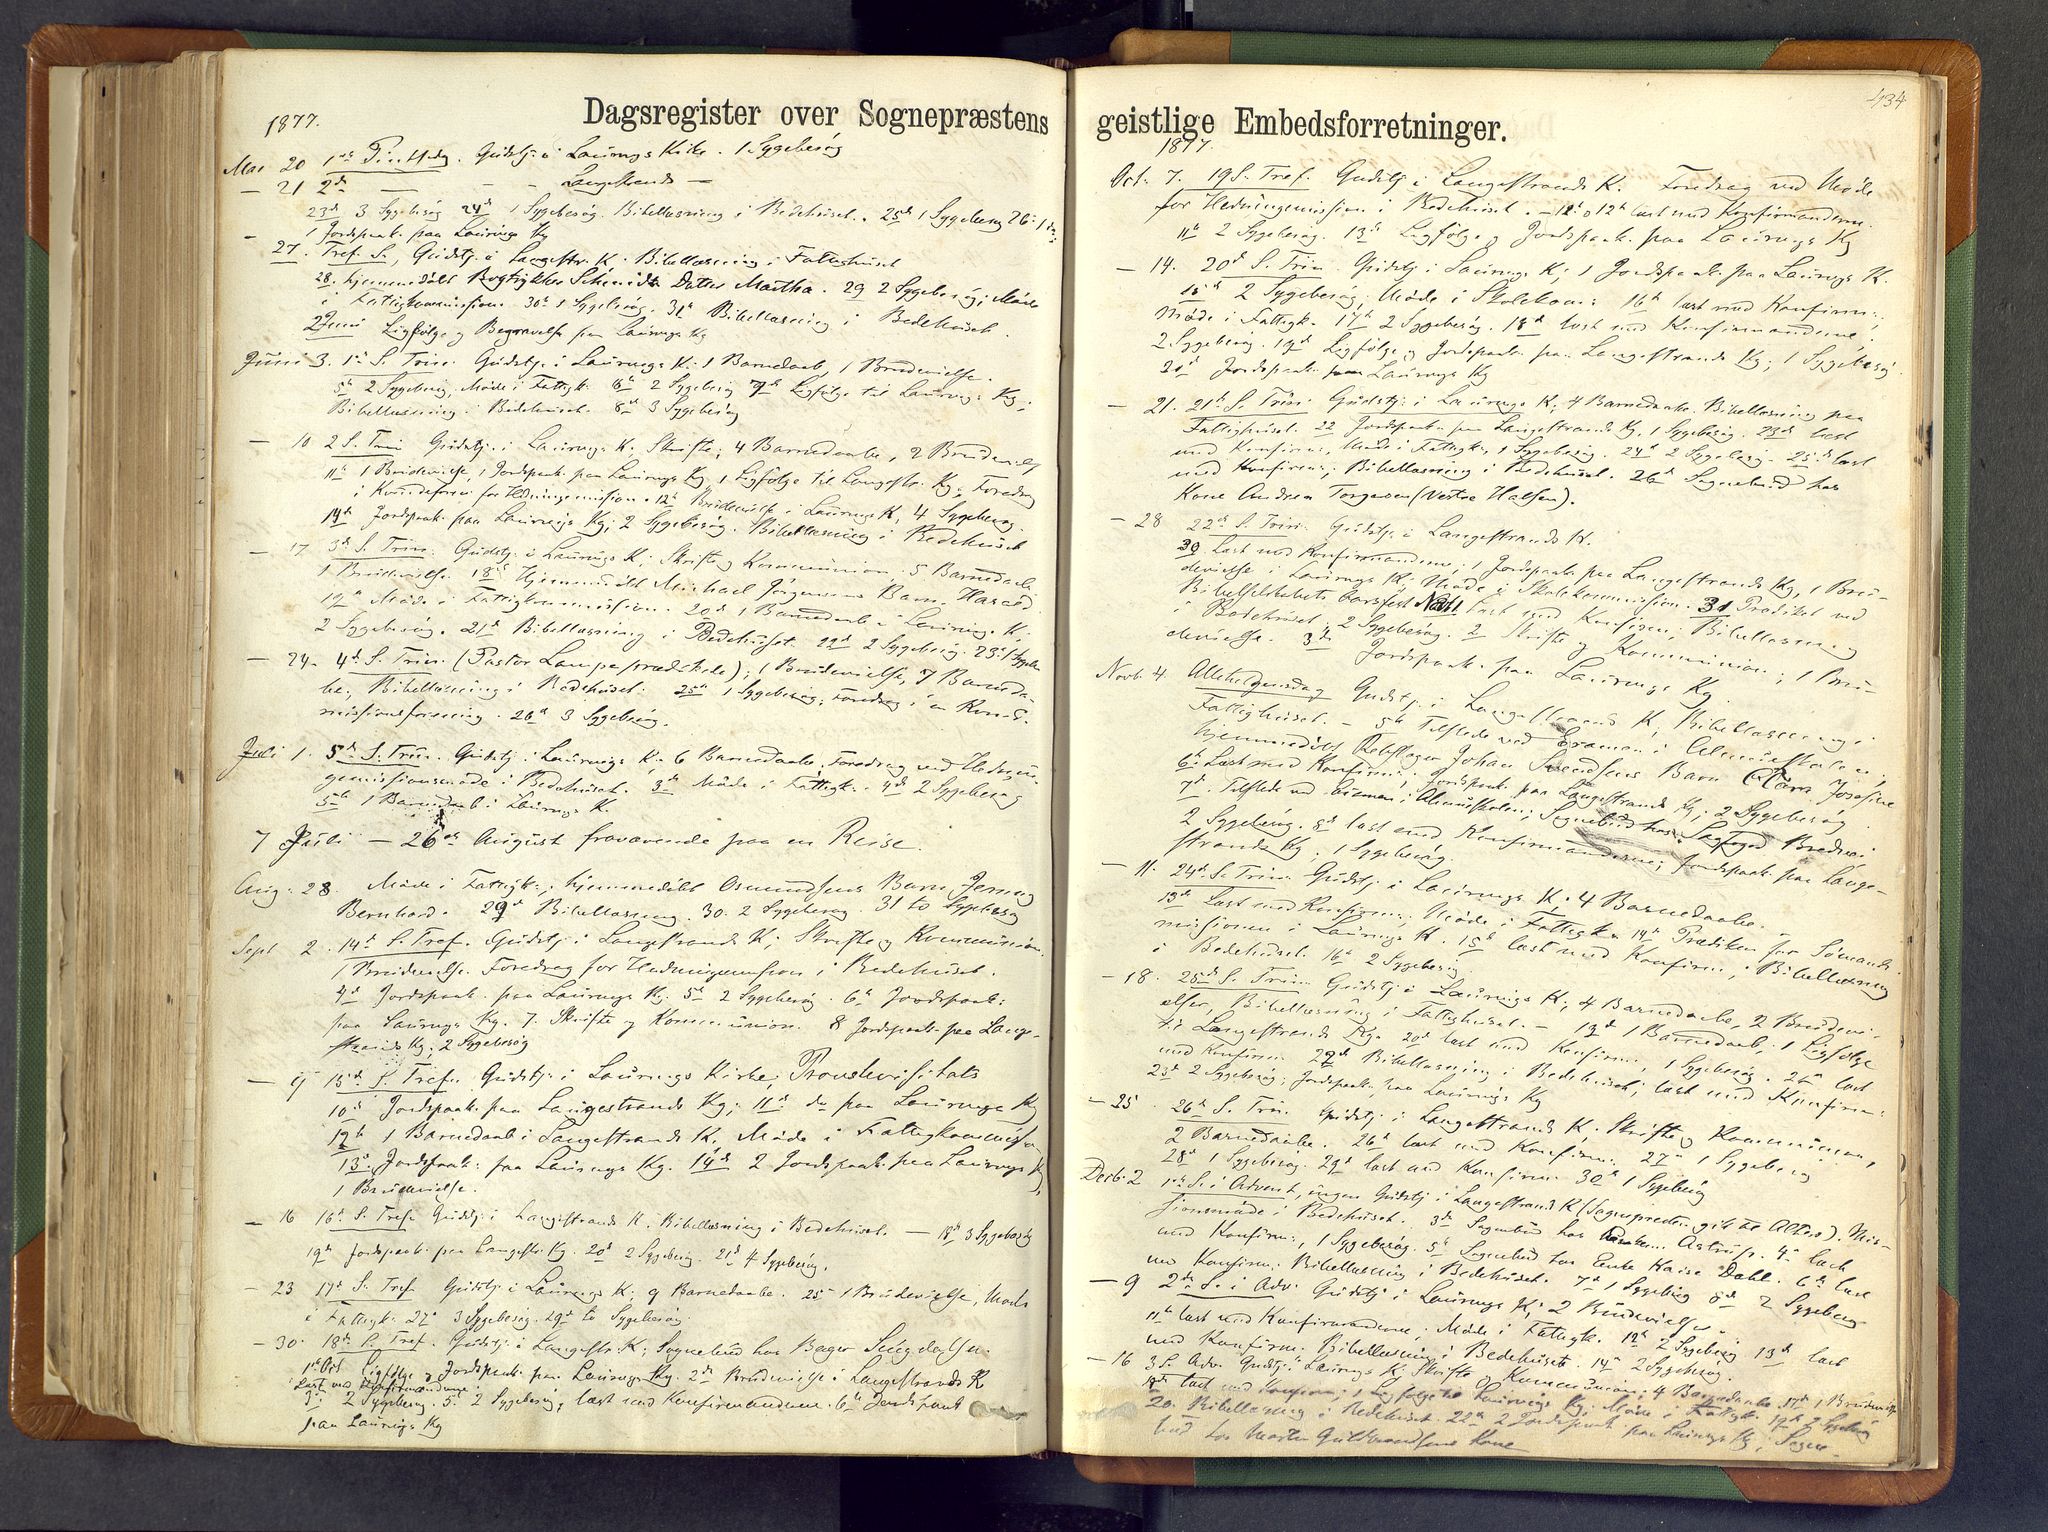 Dagsregister over Sognepræstens
1877.
Mai 20 1ste Pintsedag. Gudstj. i Laurvigs Kirke. 1 Sygebesøg
— 21 2d — — Langestrands —
23d 3 Sygebesøg 24d 1 Sygebesøg. Bibellæsning i Bedehuset. 25d 1 Sygebesøg 26:
1 Jordspaak. paa Laurvigs Kg
— 27. Tref. S., Gudstj. i Langestr. K. Bibellæsning i Fattighuset
28. hjemmedøbt Bogtrykker Schmidts Datter Martha. 29 2 Sygebesøg; Møde
i Fattigkommissionen. 30te 1 Sygebesøg. 31te Bibellæsning i Bedehuset.
2 Juni Ligfølge og Begravelse paa Laurvigs Kg
Juni 3. 1ste S. Trin. Gudstj. i Laurvigs K: 1 Barnedaab, 1 Brudevielse.
5te 2 Sygebesøg, Møde i Fattigk. 6te 2 Sygebesøg 7de Ligfølge til Laurvigs Kg;
Bibellæsning i Bedehuset. 8de 3 Sygebesøg
— 10 2 S. Trin Gudstj. i Laurvigs K; Skrifte; 4 Barnedaabe, 2 Brudevielser
11te 1 Brudevielse, 1 Jordspaak. paa Laurvigs Kg, 1 Ligfølge til Langestr. Kg; Foredrag
i Kvindeforen. for Hedningemission. 12te Brudevielse i Laurvigs K, 4 Sygebesøg.
14de Jordspaak. paa Laurvigs Kg; 2 Sygebesøg. Bibellæsning i Bedehuset
— 17. 3d S. Trin. Gudstj. i Laurvigs K; Skrifte og Kommunion. 5 Barnedaabe
1 Brudevielse. 18de Hjemmedøbt Michael Jørgensens Barn Harald.
19de Møde i Fattigkommissionen. 20de 1 Barnedaab i Laurvigs K.
2 Sygebesøg. 21de Bibellæsning i Bedehuset. 22de 2 Sygebesøg. 23: 1 Sygebe
— 24. 4d S. Trin. (Pastor Lampe prædikede); 1 Brudevielse, 7 Barneda-
be, Bibellæsning i Bedehuset. 25de 1 Sygebesøg, Foredrag i en Kvinde-
missionsforening. 26d 3 Sygebesøg.
Juli 1. 5d S. Trin. Gudstj. i Laurvigs K. 6 Barnedaabe. Foredrag ved Hednin-
gemissionsmøde i Bedehuset. 3de Møde i Fattigk. 4de 2 Sygebesøg
5te 1 Barnedaab i Laurvigs K.
7 Juli — 26de August fraværende paa en Reise.
Aug: 28. Møde i Fattigk.; hjemmedøbt Osmundsens Barn Jenny
Bernhard. 29d Bibellæsning. 30. 2 Sygebesøg. 31 to Sygebesøg
Sept 2. 14d S. Tref. Gudstj. i Langestrands K; Skrifte og Kommunion.
1 Brudevielse. Foredrag for Hedningemission i Bedehuset.
4d Jordspaak. paa Laurvigs Kg. 5te 2 Sygebesøg. 6te Jordspaak:
paa Laurvigs Kg. 7. Skrifte og Kommunion. 8 Jordspaak. paa Lange-
strands Kg; 2 Sygebesøg
— 9 15d S. Tref. Gudstj. i Laurvigs Kirke; Provstevisitats
10de Jordspaak. paa Langestrands Kg; 11te do paa Laurvigs Kg
12te 1 Barnedaab i Langestrands K. Møde i Fattigkommission
13de Jordspaak: paa Laurvigs Kg. 14de 2 Jordspaak. paa Laurvigs Kg,
1 Brudevielse.
— 16 16d S. Tref. Gudstj. i Langestrands K. Bibellæsning i Bedehuset. — 18de 3 Sygebesøg
19de Jordspaak. paa Langestr. Kg. 20d 2 Sygebesøg. 21d 4 Sygebesøg.
— 23 17d S. Tref Gudstj. i Laurvigs K; 9 Barnedaabe. 25 1 Brudevielse, Møde
i Fattigk. 27d 3 Sygebesøg. 29d to Sygebesøg.
— 30. 18de S. Tref. Gudstj. i Langestr. K; Sognebud hos Bager
1ste Oct. Ligfølge og Jordspaak. paa Laurvigs Kg. 2de Brudevielse i Langestrands K
Læst med Konfirmanderne.
3d 2 Sygebesøg. 5. 2 Sygebesøg, læst med Konfirmanderne. 6te Jordspaak
paa Laurvigs Kg
geistlige Embedsforretninger.
434
1877.
Oct. 7. 19 S. Tref. Gudstj. i Langestrands K. Foredrag ved Møde
for Hedningemission i Bedehuset. — læst med Konfirmanderne.
11te 2 Sygebesøg. 13de Ligfølge og Jordspaak. paa Laurvigs Kg
— 14. 20d S. Trin. Gudstj. i Laurvigs K; 1 Jordspaak. paa Laurvigs K.
15de 2 Sygebesøg; Møde i Skolekom: 16te læst med Konfirm:,
Møde i Fattigk. 17te 2 Sygebesøg. 18de læst med Konfirmanderne,
2 Sygebesøg. 19de Ligfølge og Jordspaak. paa Langestrands Kg; 1 Sygebesøg.
20de Jordspaak. paa Laurvigs Kg
— 21. 21de S. Trin. Gudstj. i Laurvigs K; 4 Barnedaabe. Bibellæsning paa
Fattighuset. 22 Jordspaak. paa Langestrands Kg, 1 Sygebesøg. 23de læst
med Konfirm., Møde i Fattigk., 1 Sygebesøg. 24de 2 Sygebesøg. 25de læst
med Konfirm., Bibellæsning i Bedehuset. 26de Sognebud hos
Kone Andrea Torgersen (Vestre Halsen).
— 28 22de S. Trin. Gudstj. i Langestrands K.
30 Læst med Konfirmanderne, 1 Jordspaak. paa Langestrands Kg, 1 Bru-
devielse i Laurvigs K; Møde i Skolekommission. 31 Prædiket ved
Bibelselskabets Aarsfest Nov: 1 læst med Konfirm; Bibellæsning
i Bedehuset, 2 Sygebesøg. 2 Skrifte og Kommunion; 1 Bru-
devielse. 3de Jordspaak. paa Laurvigs Kg
Novb. 4. Allehelgensdag Gudstj. i Langestrands K, Bibellæsning i
Fattighuset. — 5te Tilstede ved Examen i Almueskolen;
hjemmedøbt Rebslager Johan Svendsens Barn Clara Josefine
6te Læst med Konfirm:, Jordspaak. paa Langestrands Kg, 2 Sygebesøg.
7d. Tilstede ved Examen i Almueskolen; Sognebud hos Bredvei
2 Sygebesøg. 8de læst med Konfirmanderne; Jordspaak. paa Lange-
strands Kg; 1 Sygebesøg.
— 11. 24de S. Trin. Gudstj. i Laurvigs K; 4 Barnedaabe.
13de Læst med Konfirm; Møde i Fattigk. 14de Prædiken for Sømands
missionen i Laurvigs K. 15de læst med Konfirm, Bibellæsning
i Bedehuset. 16de 2 Sygebesøg.
— 18. 25de S. Trin. Gudstj. i Laurvigs K; 4 Barnedaabe, 2 Brudevi-
elser, Bibellæsning i Fattighuset. — 19de 1 Barnedaab, 1 Ligfølge
til Langestrands Kg. 20de læst med Konfirm, 1 Sygebesøg. læst
med Konfirm. 22de Bibellæsning i Bedehuset; læst med Konfirm:
23de 2 Sygebesøg; Jordspaak. paa Laurvigs Kg
— 25 26de S. Trin. Gudstj. i Langestrands K, Skrifte og Kommunion,
2 Barnedaabe. 26de læst med Konfirm. 27de 1 Sygebesøg
28de 1 Sygebesøg. 29de læst med Konfirm. 30de 1 Sygebesøg
Decb. 2 1ste S. i Advent, ingen Gudstj. i Langestrands K (Sognepresten gik til Alters). Mis-
sionsmøde i Bedehuset. 3de Sognebud hos Astrup. 4de læst
med Konfirm:, 1 Sygebesøg. 5te Sognebud hos Enke Kaisa Dahl. 6te læst
med Konfirm: Bibellæsning i Bedehuset. 7de 1 Sygebesøg 8de 2 Sygebesøg
— 9 2de S. i Adv. Gudstj. i Laurvigs K; 2 Brudevielser.
11te læst med Konfirmanderne, Møde i Fattigk. 12te 2 Sygebesøg 13de læst
med Konfirm: Bibellæsning i Bedehuset. 14de 2 Sygebesøg.
— 16 3 S. Adv. Gudstj. i Laurvigs K; Skrifte og Kommunion; 4 Barnedaabe 17de 1 Brudevielse
18de læst med Konfirm; 1 Ligfølge til Laurvigs Kg; Møde i Fattigk. 19de 2 Sygebesøg
20. Bibellæsning i Bedehuset. 22de 2 Jordspaak. paa Laurvigs Kg; Sogne-
bud hos Morten Guldbrandsens Kone